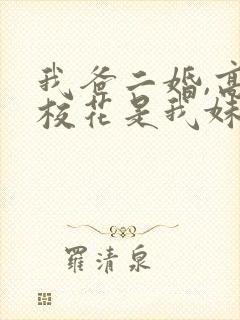 我爸二婚,高
校花是我妹
羅清泉